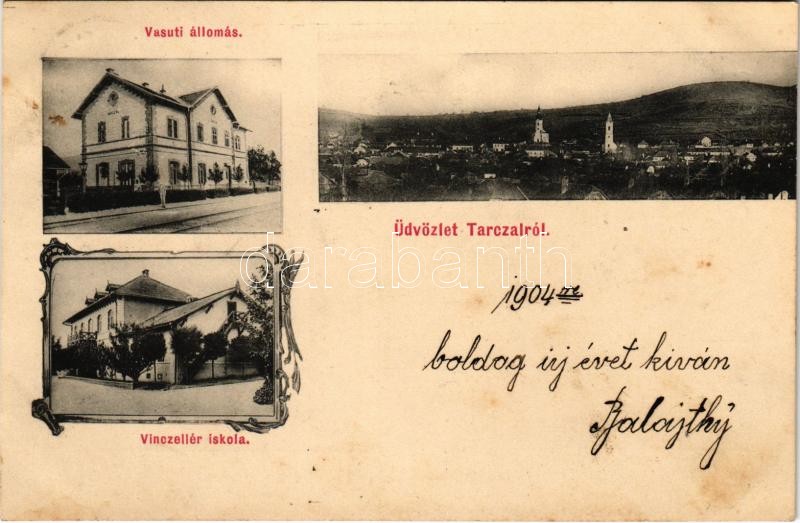 Vasuti állomás.
Üdvözlet Tarczalról.
darabanth
1904 re
boldog új évet kíván
Balajthy
Vinczellér iskola.